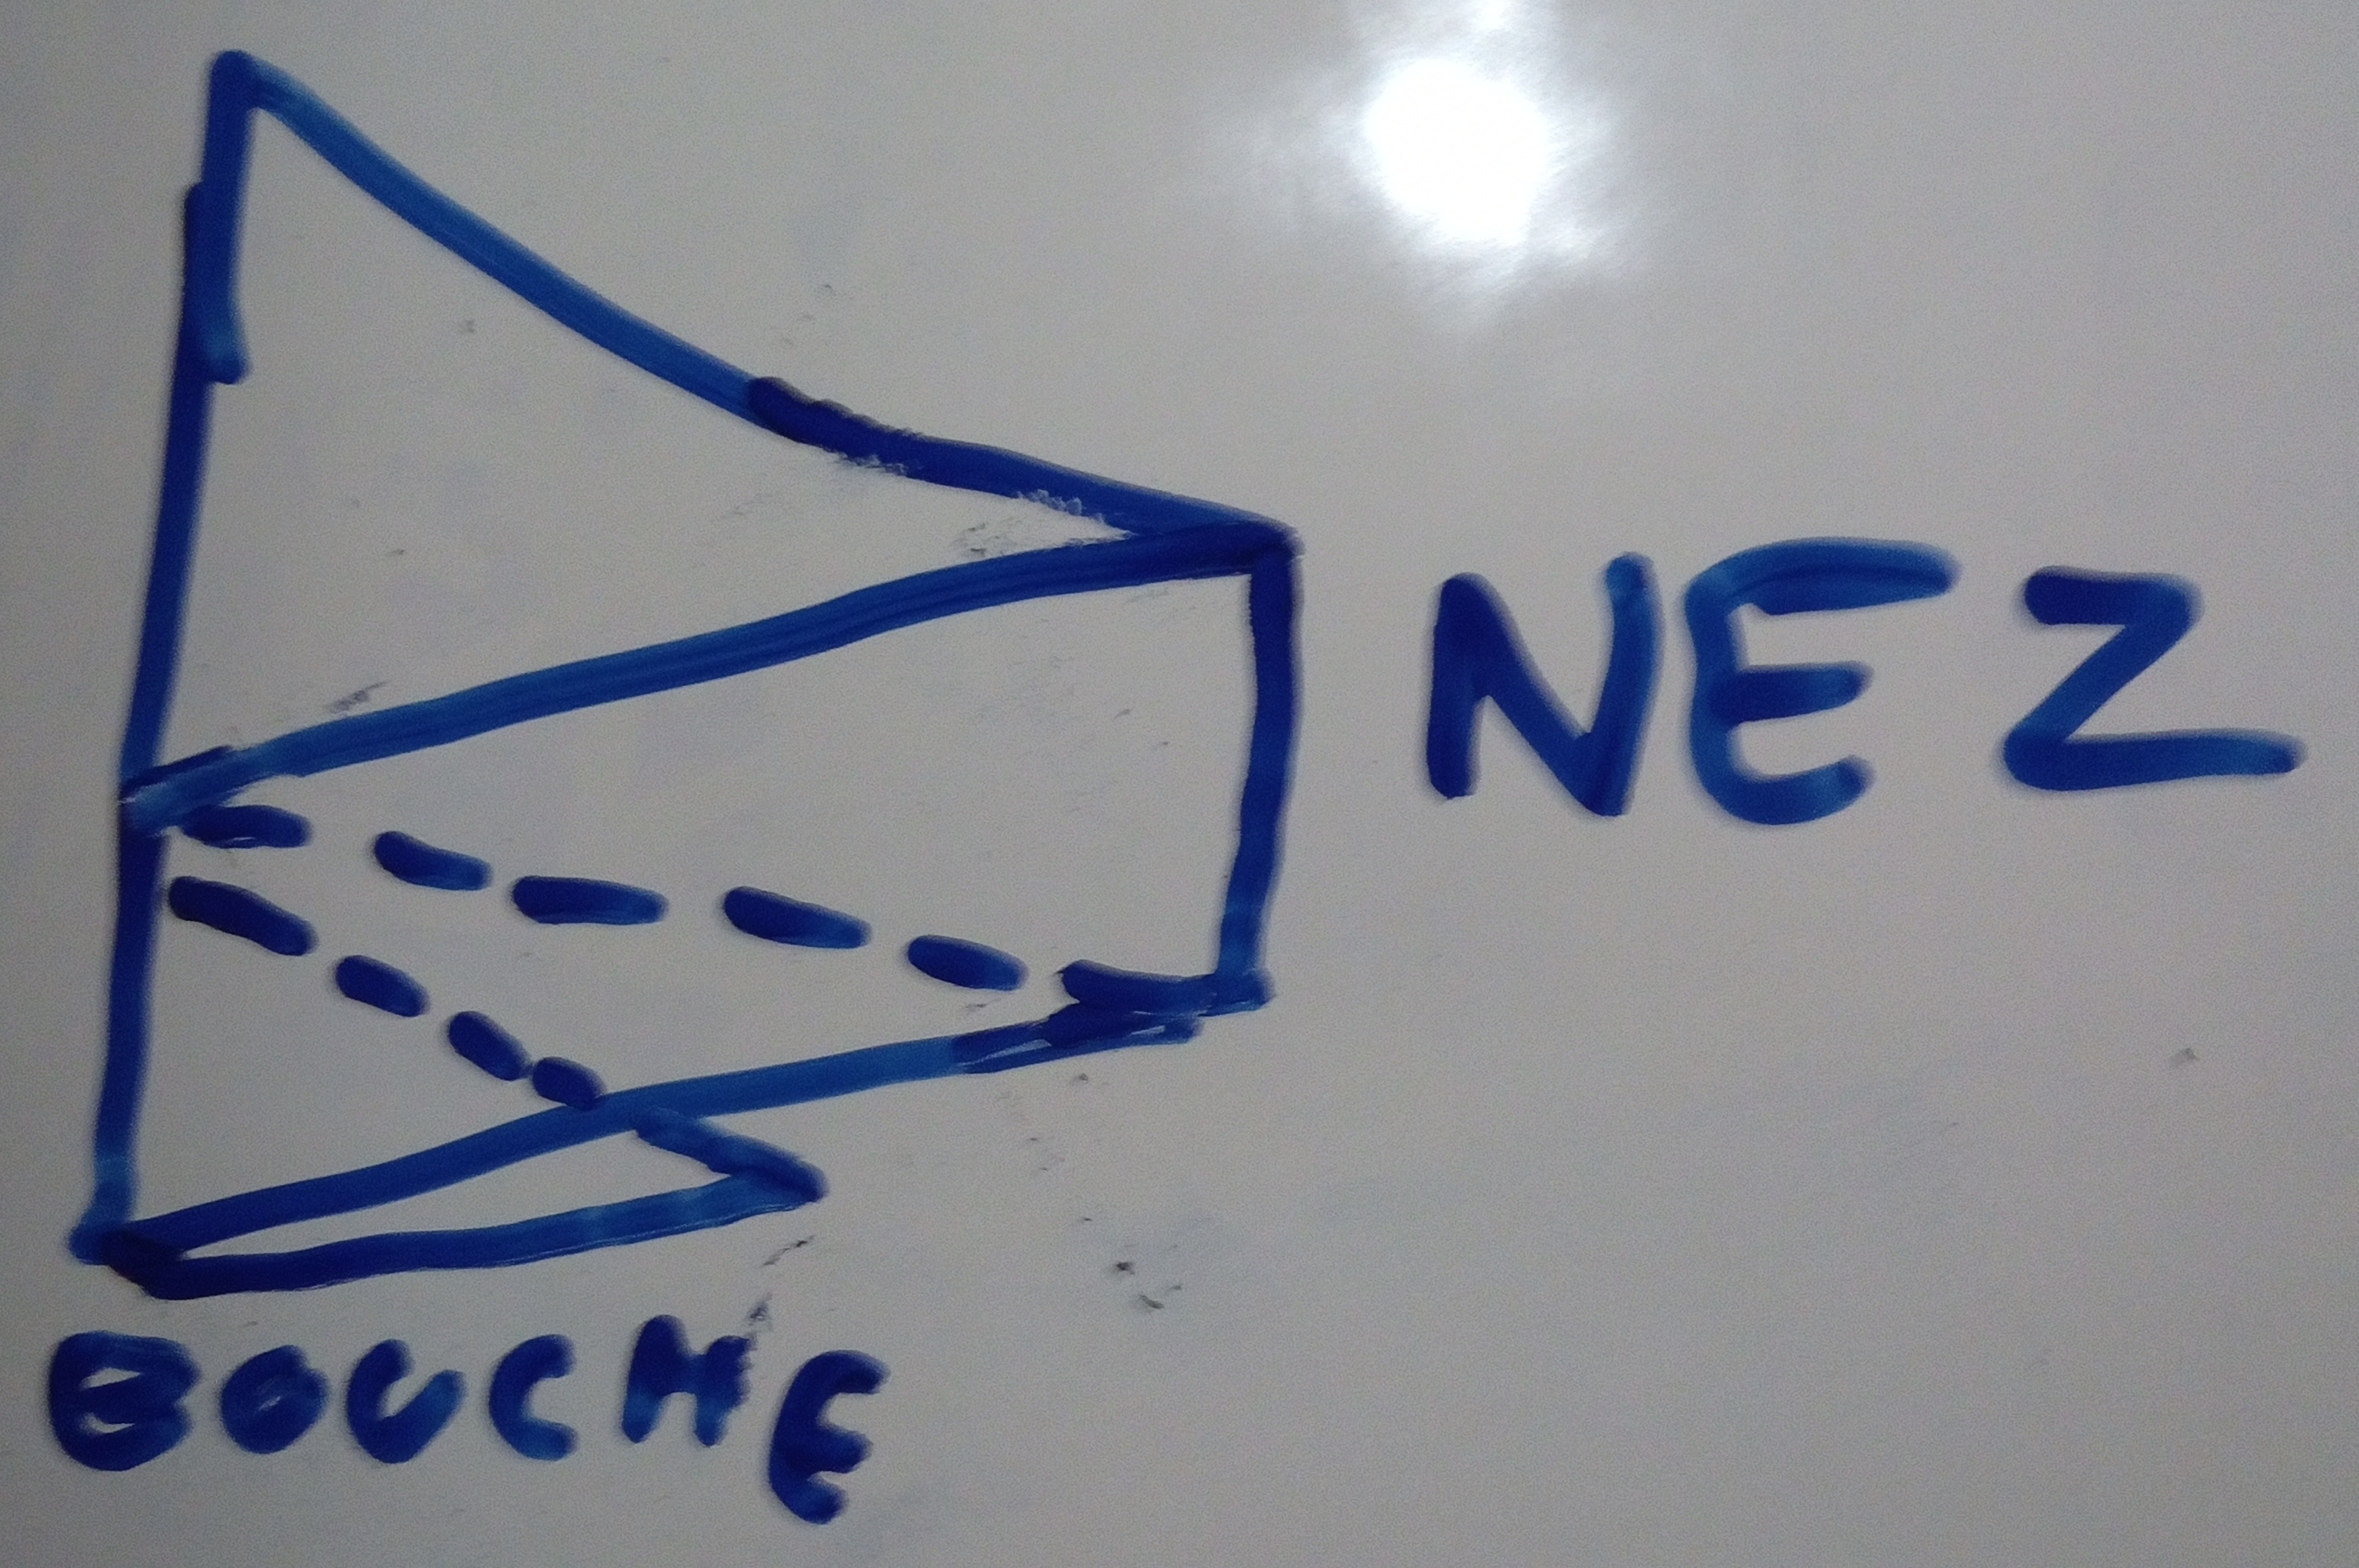 NEZ
BOUCHE